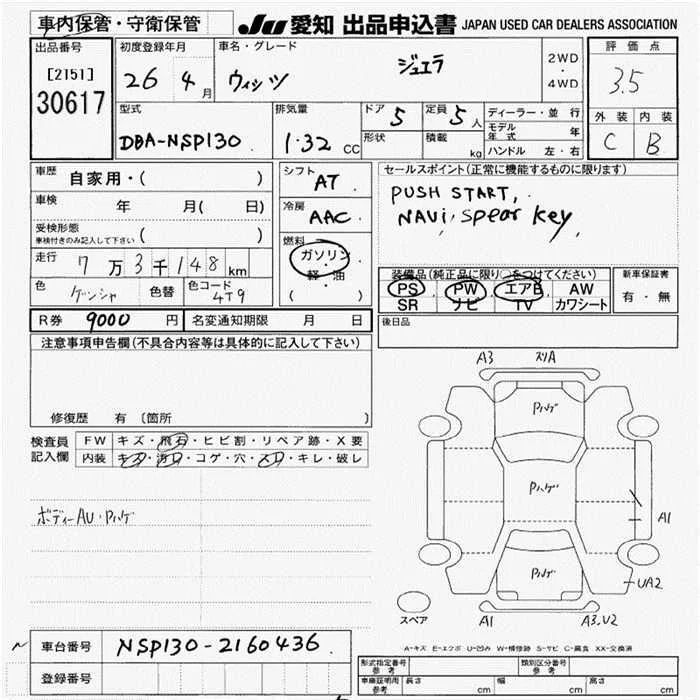 車内保管・守衛保管 JU 愛知 出品申込書 JAPAN USED CAR DEALERS ASSOCIATION
出品番号 初度登録年月 車名・グレード 評価点
[2151] 26 4月 ウィッツ ジュエラ 2WD・4WD 3.5
30617
型式 排気量 ドア 5 定員 5人 ディーラー・並行 外装 内装
DBA-NSP130 1.32 CC 形状 積載 kg モデル年式 年 C B
ハンドル 左・右
車歴 自家用・( ) シフト AT セールスポイント(正常に機能するものに限ります)
車検 年 月( 日) 冷房 AAC PUSH START,
受検形態 車検付きのみ記入して下さい ( ) NAVi, Spear Key,
走行 7万3千148km 燃料 ガソリン・軽・油 ( )
装備品(純正品に限り○をつけてください) 新車保証書
色 ゲンシャ 色替 色コード 4T9 PS PW エアB AW 有・無
SR ナビ TV カワシート
R券 9000 円 名変通知期限 月 日 後日品
注意事項申告欄(不具合内容等は具体的に記入して下さい)
修復歴 有 〔箇所 〕
A3 スリA
Pハゲ
検査員記入欄 FW キズ・飛石・ヒビ割・リペア跡・X要
内装 キズ・汚れ・コゲ・穴・スレ・キレ・破レ
Pハゲ
ボディーAU・Pハゲ
A1
Pハゲ
UA2
スペア A1 A3.U2
車台番号 NSP130-2160436
A-キズ E-エクボ U-凹み W-補修跡 S-サビ C-腐食 XX-交換済
登録番号
形式指定番号 参考 類別区分番号 参考
車庫証明用 参考 長さ cm 幅 cm 高さ cm